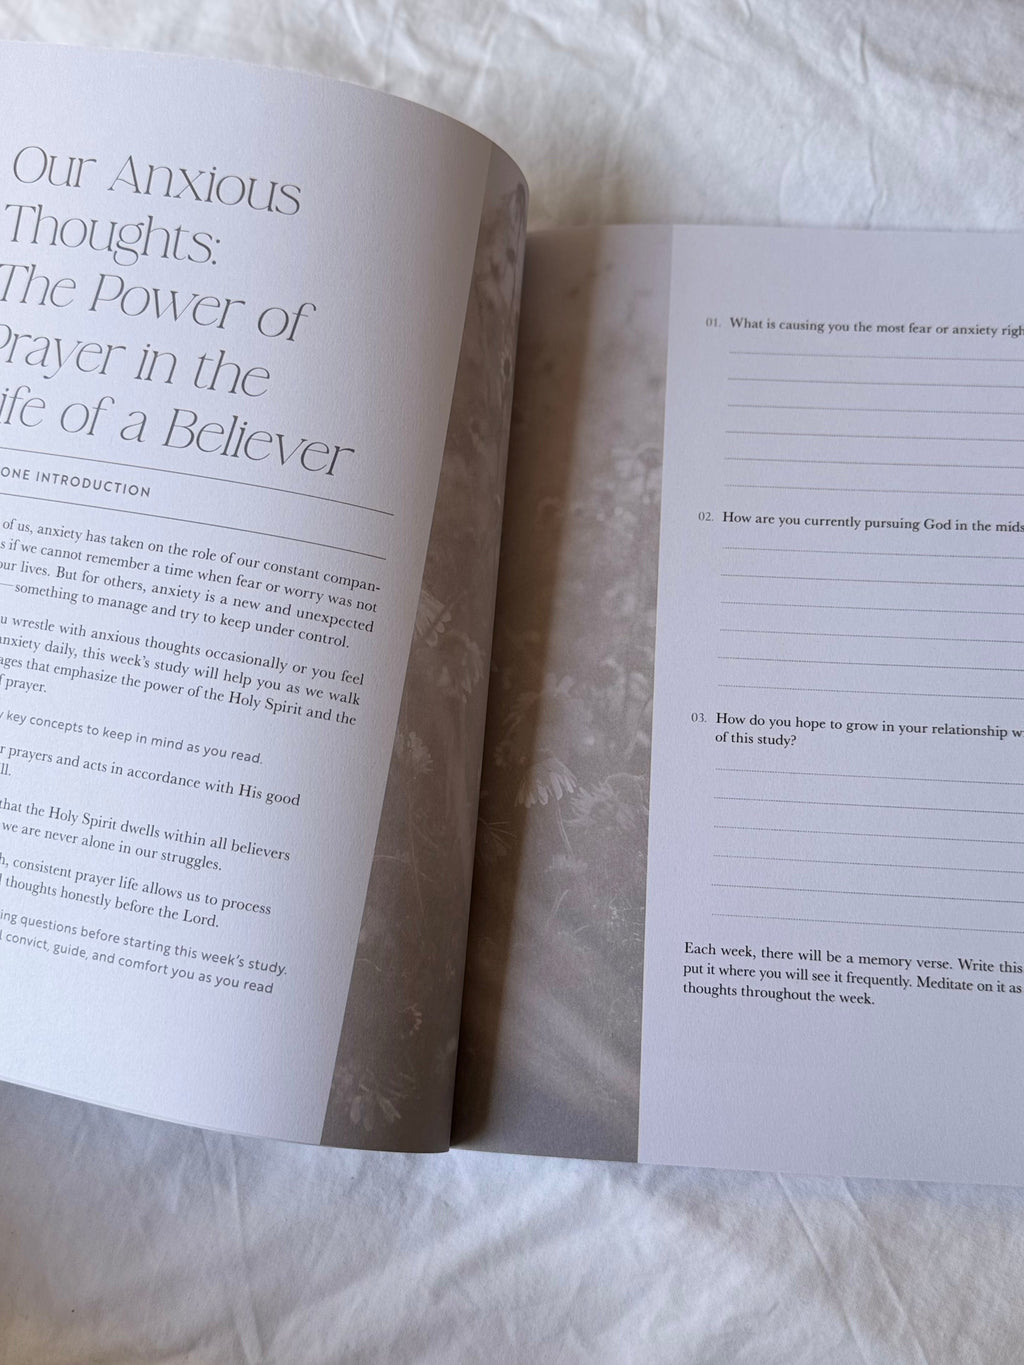 Our Anxious
Thoughts:
The Power of
Prayer in the
ife of a Believer
ONE INTRODUCTION
of us, anxiety has taken on the role of our constant compan-
s if we cannot remember a time when fear or worry was not
our lives. But for others, anxiety is a new and unexpected
—something to manage and try to keep under control.
u wrestle with anxious thoughts occasionally or you feel
anxiety daily, this week's study will help you as we walk
ages that emphasize the power of the Holy Spirit and the
f prayer.
y key concepts to keep in mind as you read.
r prayers and acts in accordance with His good
ll.
that the Holy Spirit dwells within all believers
we are never alone in our struggles.
h, consistent prayer life allows us to process
l thoughts honestly before the Lord.
ing questions before starting this week's study.
l convict, guide, and comfort you as you read
01. What is causing you the most fear or anxiety righ
02. How are you currently pursuing God in the mids
03. How do you hope to grow in your relationship w
of this study?
Each week, there will be a memory verse. Write this
put it where you will see it frequently. Meditate on it as
thoughts throughout the week.